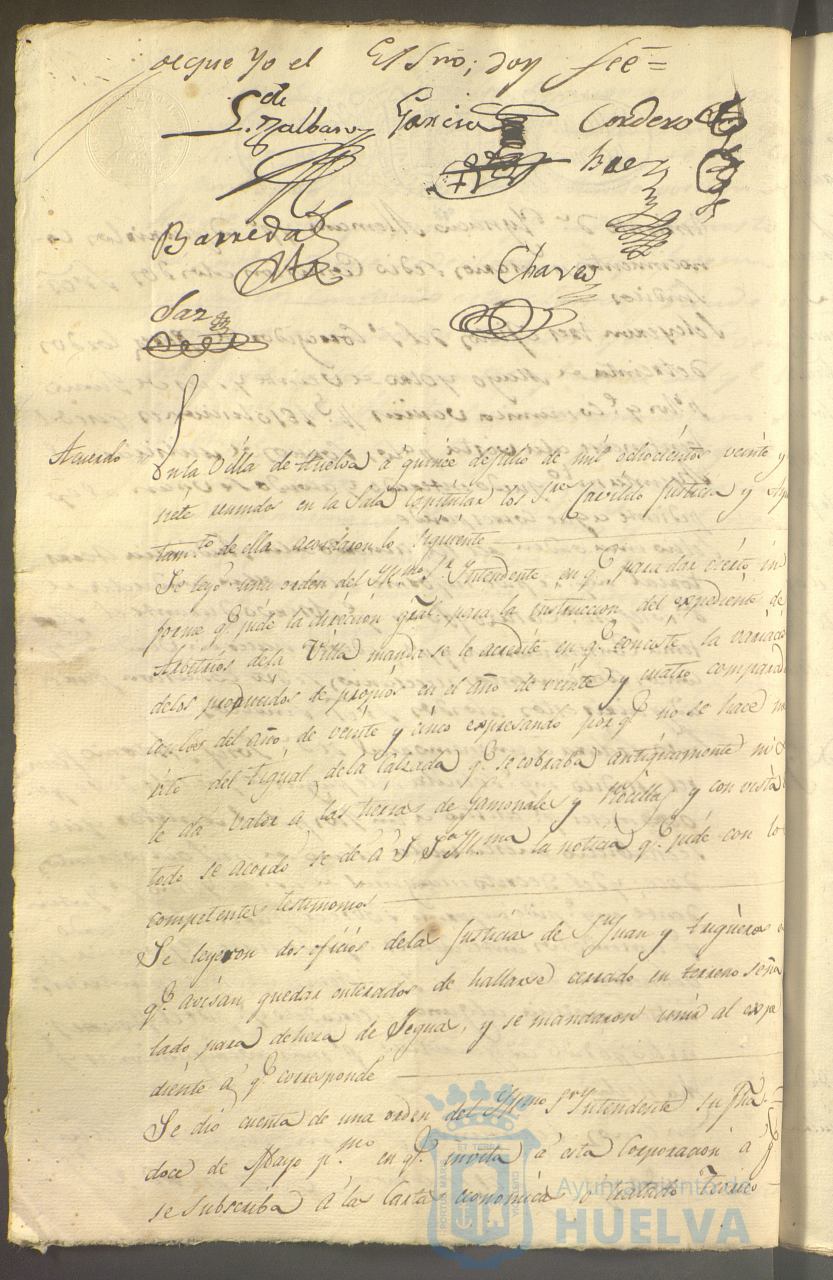 de que Yo el Essño; doy fee=
L.do Nalbaro Garcia Cordero
Baez
Barreda
Chaves
Saz
Acuerdo En la Villa de Huelva à quince de Julio de mil ochocientos veinte y
siete reunidos en la Sala Capitular los S.res Cavildo Justicia y Ayu
tam.to de ella acordaron lo siguiente
Se leyó una orden del Yll.mo S.r Yntendente en q.e para dar cierto in
forme q.e pide la dirección gral. para la instruccion del expediente de
Arbitrios de la Villa manda se le acredite en q.e concista la variació
de los producidos de propios en el año de veinte y cuatro compara
con los del año de veinte y cinco expresando por q.e no se hace
rito del tigual de la Calzada q.e se cobraba antiguamente ni
le da valor à las tierras de Jamonales y Rocillas y con vista
todo se acordó se de à S.S.a Yll.ma la noticia q.e pide con lo
competentes testimonios
Se leyeron dos oficios de la Justicia de S.n Juan y trigueros
q.e avisan quedar enterados de hallarse cerrado en terreno seña
lado para deheza de Yegua, y se mandaron unir al expe
diente à q.e corresponde
Se dió cuenta de una orden del Yll.mo S.r Yntendente su fha.
doce de Mayo p.mo en q.e invita à esta Corporacion à q.e
se subscriba à la Carta economica y tratado
Ayuntamiento de
HUELVA